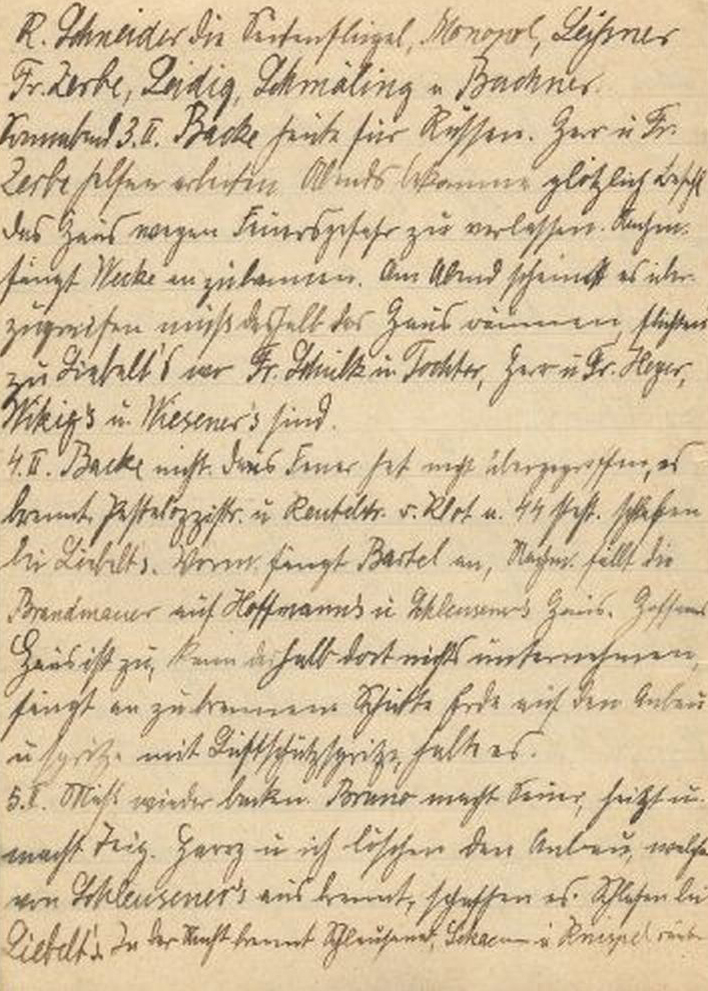 R. Schneider die Seitenflügel, Monopol, Leißner
Fr. Zerbe, Leidig, Schmäling u Buchner.
Sonnabend 3.II. Backe heute für Russen. Herr u Fr.
Zerbe helfen arbeiten Abends bekomme plötzlich Befehl
das Haus wegen Feuersgefahr zu verlassen. Nachm.
fängt Wecke an zu brennen. Am Abend scheint es über-
zugreifen muß deshalb das Haus räumen, flüchten
zu Liebelt's wo Fr. Schulk u Tochter, Herr u Fr. Heyer,
Wikig's u. Wiesener's sind.
4.II. Backe nicht. Das Feuer hat nicht übergegriffen, es
brennt Pestalozzistr. u v. Klot u. 44 schlafen
bei Liebelt's. Vorm. fängt Bartel an, Nachm. fällt die
Brandmauer auf Hoffmann's u Schleusener's Haus. Hoffmanns
Haus ist zu, kann deshalb dort nichts unternehmen,
fängt an zu brennen Schütte Erde auf den Anbau
u spritze mit Luftschutzspritze, halte es.
5.II. Muß wieder backen. Bruno macht Feuer, heizt u.
macht Teig. Harry u ich löschen den Anbau, welcher
von Schleusener's aus brennt, schaffen es. Schlafen bei
Liebelt's In der Nacht brennt Schleusener, u